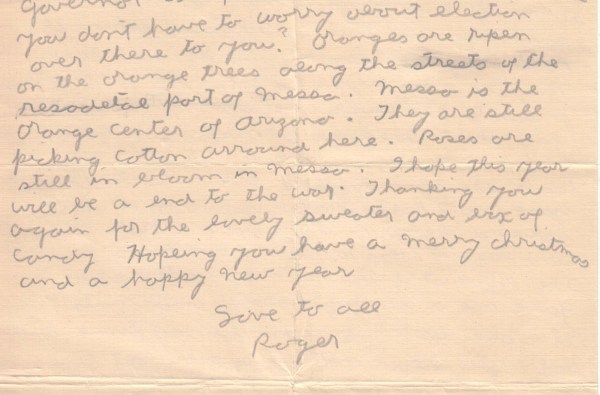 Governor
you don't have to worry about election
over there to you? Oranges are ripen
on the orange trees along the streets of the
resodetal part of Messa. Messa is the
Orange center of Arizona. They are still
picking cotton arround here. Roses are
still in bloom in Messa. I hope this year
will be a end to the war. Thanking you
again for the lovely sweater and box of
Candy Hopeing you have a merry christmas
and a happy new year
Love to all
Roger